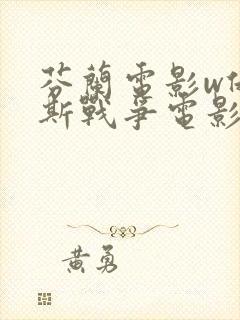 芬蘭電影w
斯戰爭電影
黃勇